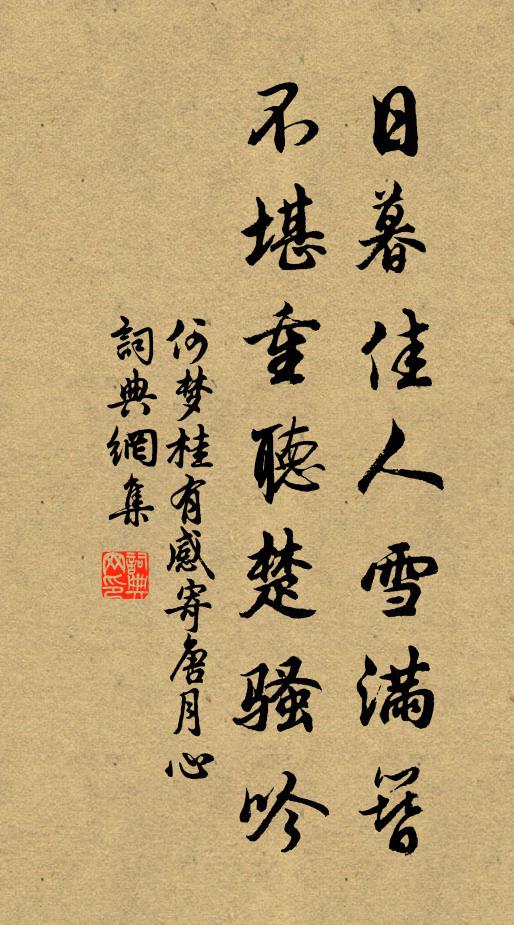 日暮佳人雪满簪
不堪重聽楚骚吟
何梦桂有感寄唐月心
詞典網集
詞典
网印